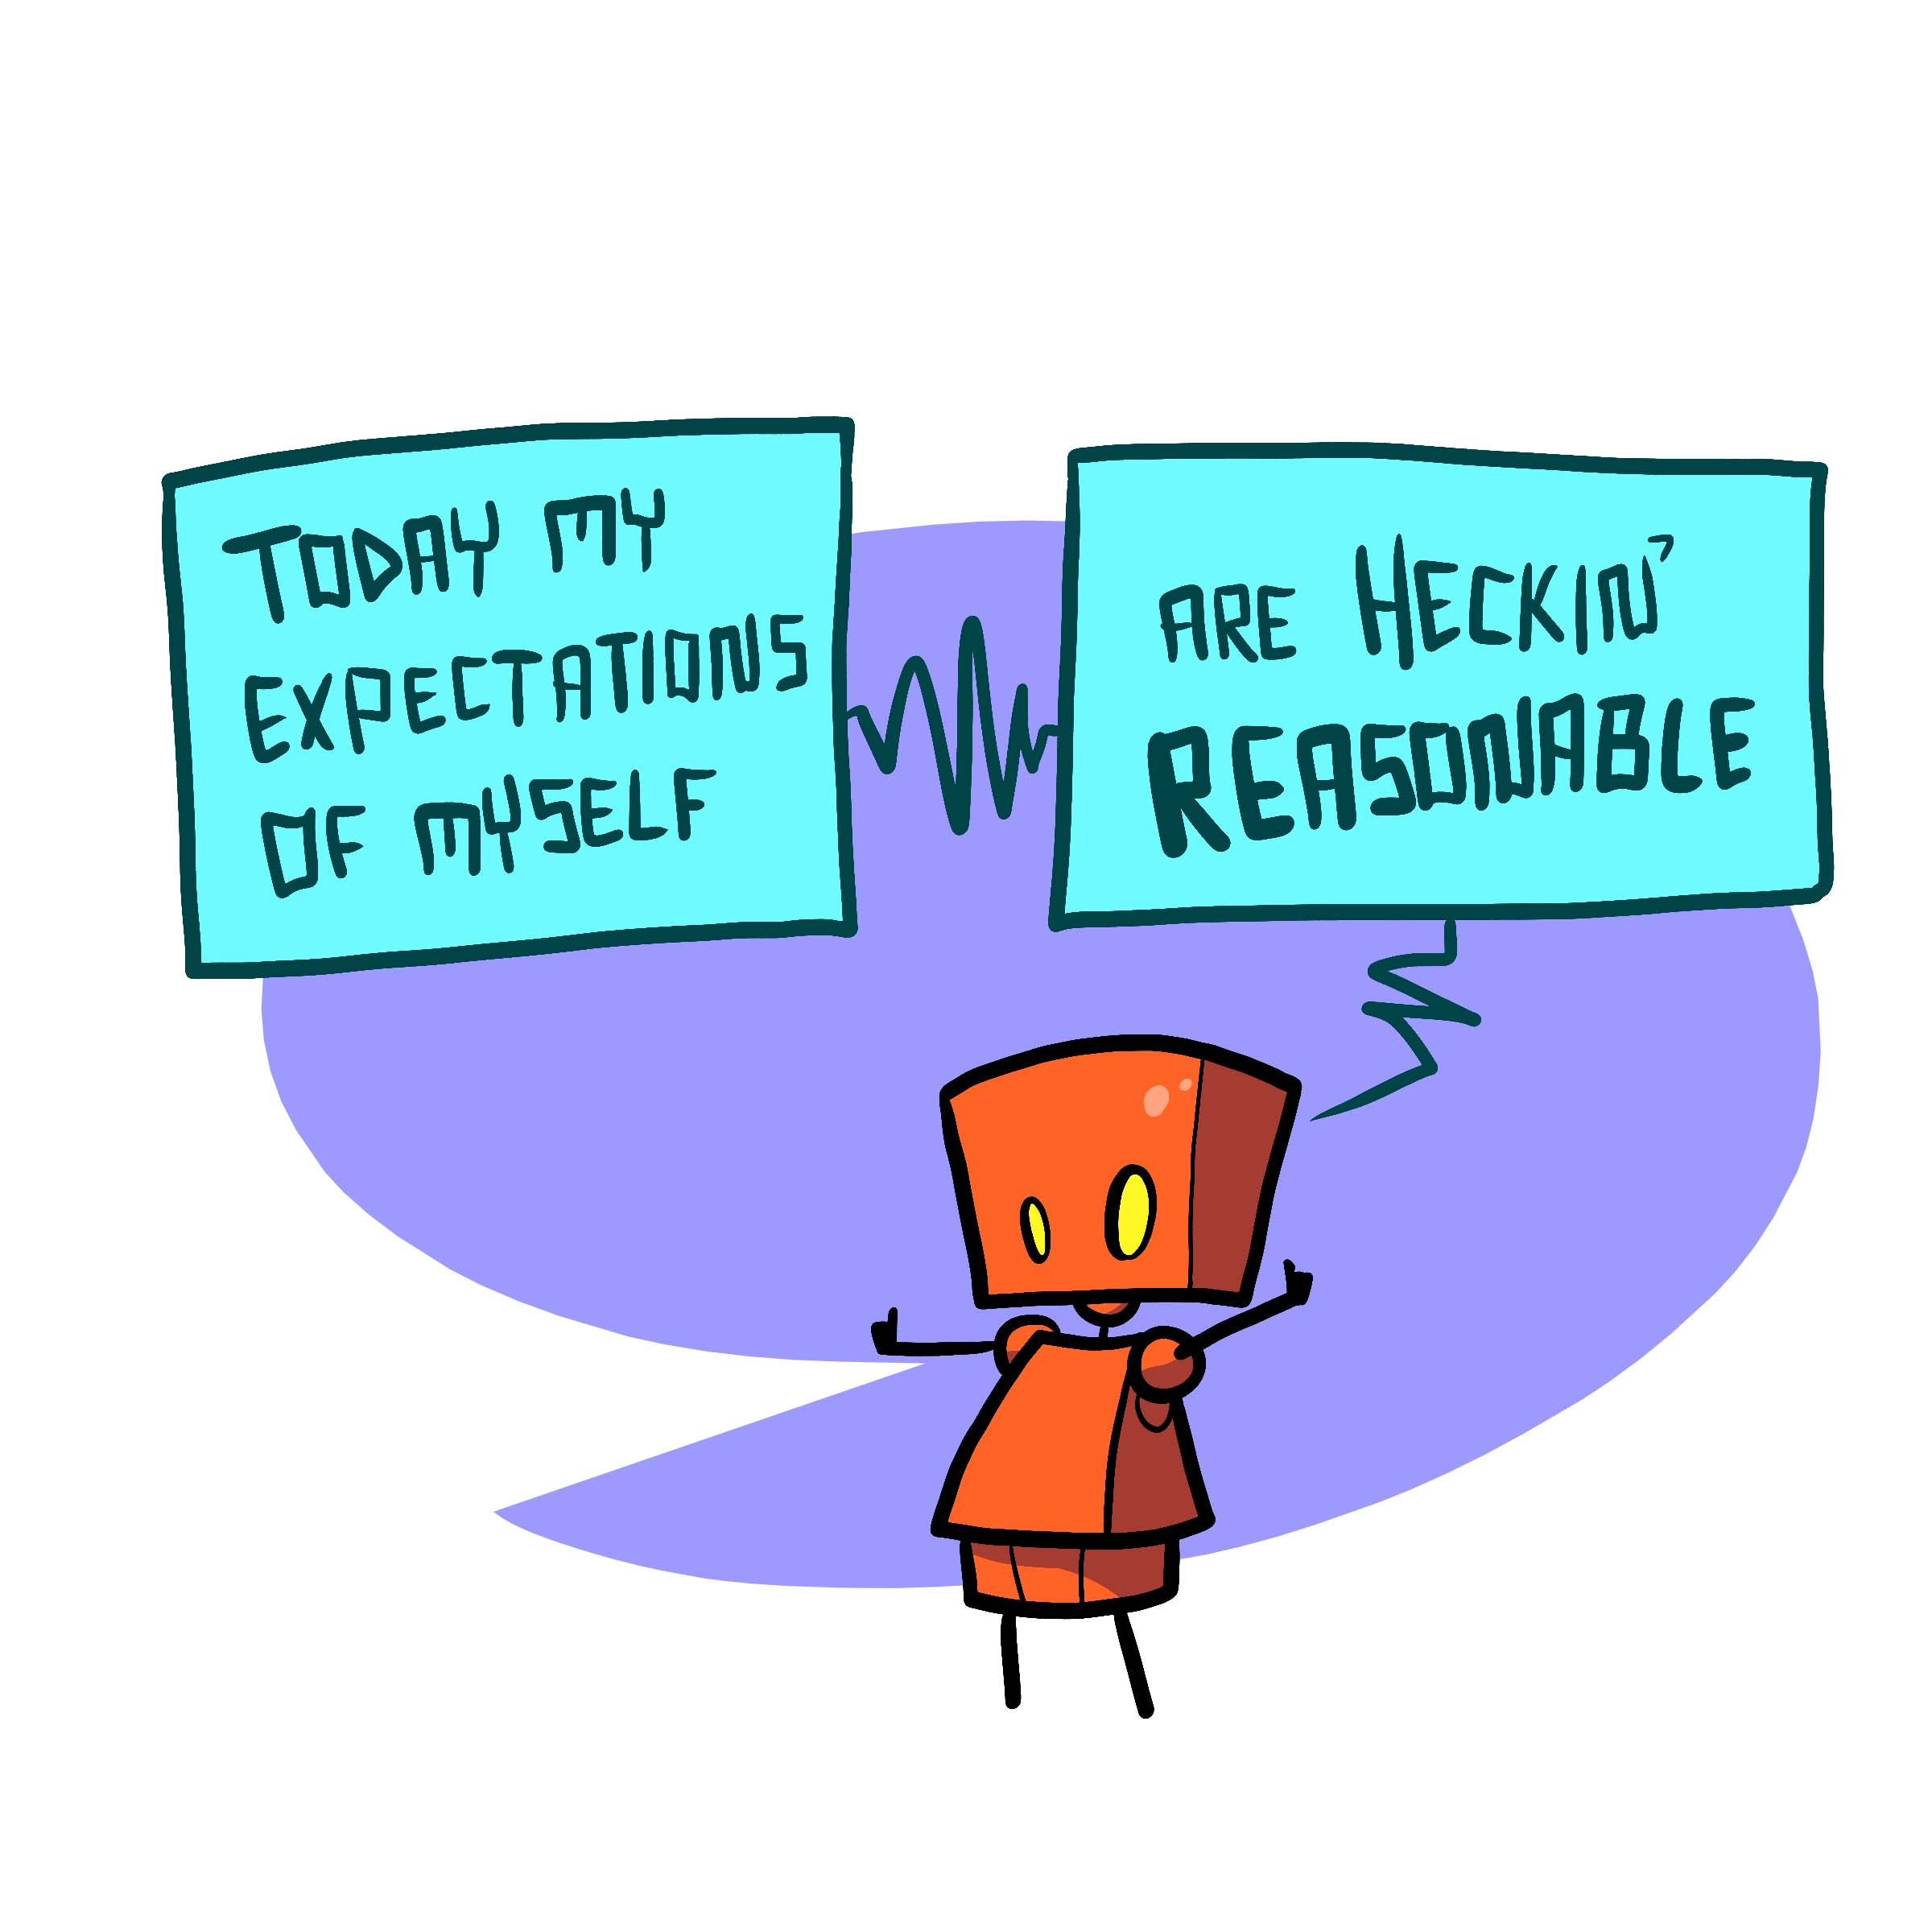 TODAY MY
EXPECTATIONS
OF MYSELF
ARE HECKIN'
REASONABLE